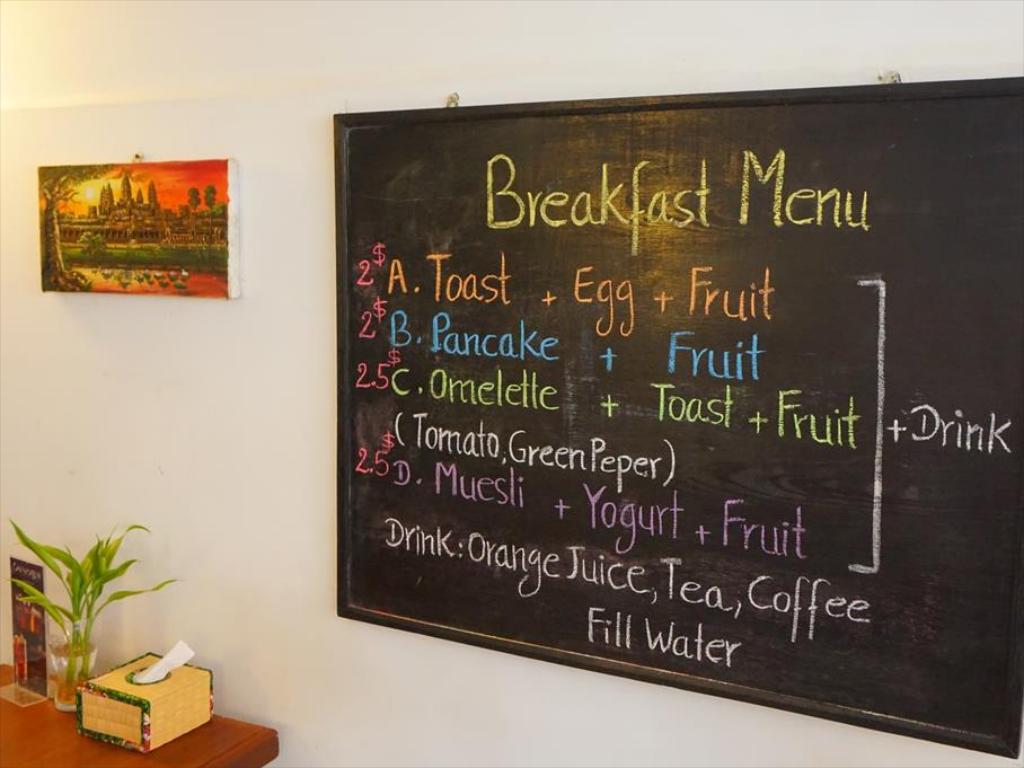 Breakfast Menu
2$ A. Toast + Egg + Fruit
2$ B. Pancake + Fruit
2.5$ C. Omelette + Toast + Fruit
(Tomato, Green Peper)
+ Drink
2.5$ D. Muesli + Yogurt + Fruit
Drink: Orange Juice, Tea, Coffee
Fill Water